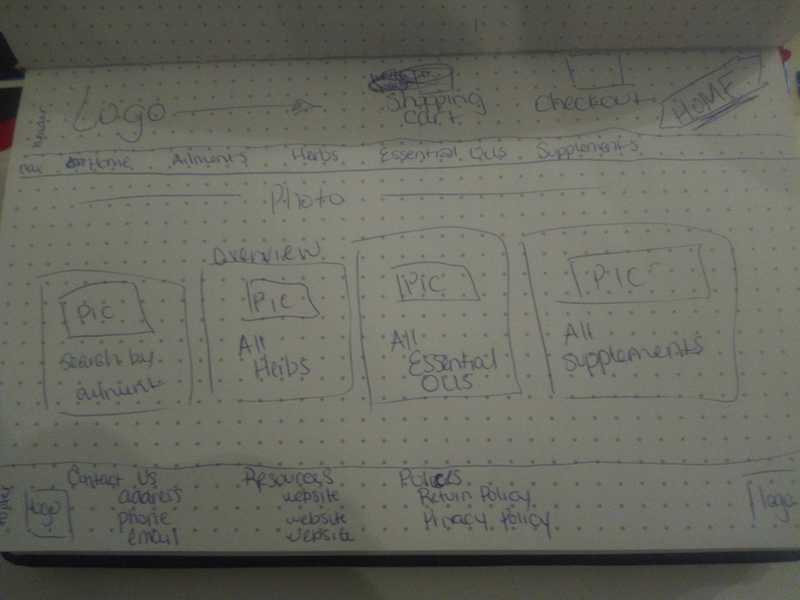 header
Logo
Shopping
Cart
Checkout
HOME
nav
Home Ailments Herbs Essential Oils Supplements
Photo
overview
Pic
search by
ailment
Pic
All
Herbs
Pic
All
Essential
Oils
Pic
All
supplements
footer
logo
Contact Us
address
phone
email
Resources
website
website
website
Policies
Return Policy
Privacy Policy
logo